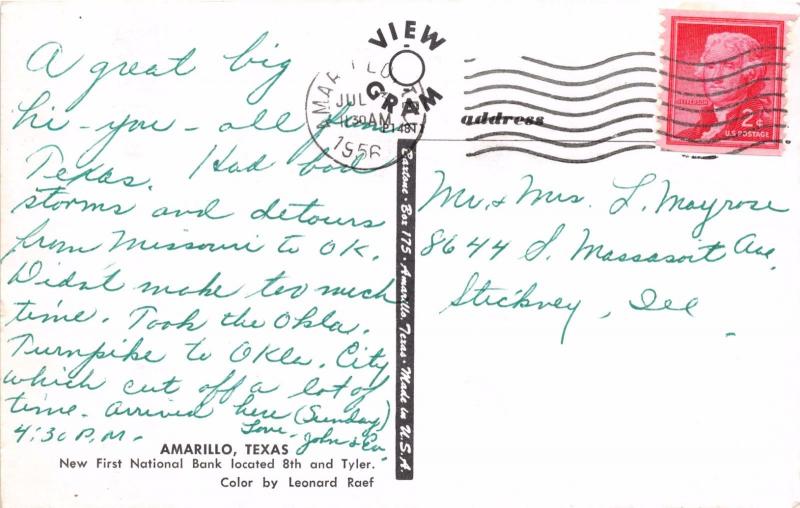 A great big
hi-you-all from
Texas. Had bad
storms and detours
from Missouri to OK.
Didn't make too much
time. Took the Okla.
Turnpike to Okla. City
which cut off a lot of
time. Arrived here (Sunday)
4:30 P.M. Love-
John & Ev
AMARILLO, TEXAS
New First National Bank located 8th and Tyler.
Color by Leonard Raef
VIEW
GRAM
AMARILLO
JUL
11 30 AM
1956
Baxtone • Box 175 • Amarillo, Texas • Made in U.S.A.
address
JEFFERSON
2¢
U.S. POSTAGE
Mr. & Mrs. L. Mayrose
8644 S. Massasoit Ave.
Stickney, Ill